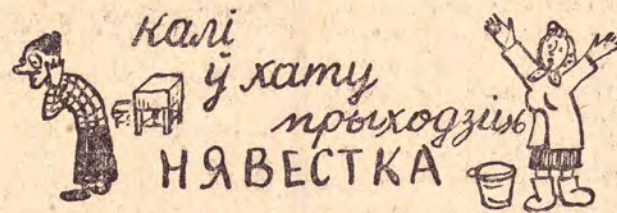 калі
ў хату
прыходзіць
НЯВЕСТКА